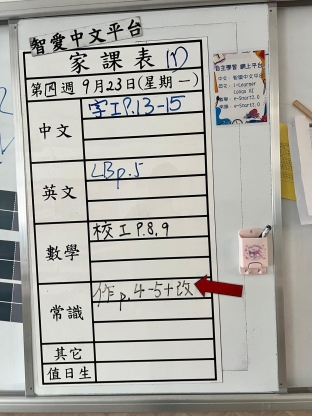 智愛中文平台
家課表 (1)
第四週 9月23日(星期一)
中文
字工P.13-15
英文
LBp.5
數學
校工P.8,9
常識
作p.4-5+改
其它
值日生
自主學習 網上平台
中文: 智愛中文平台